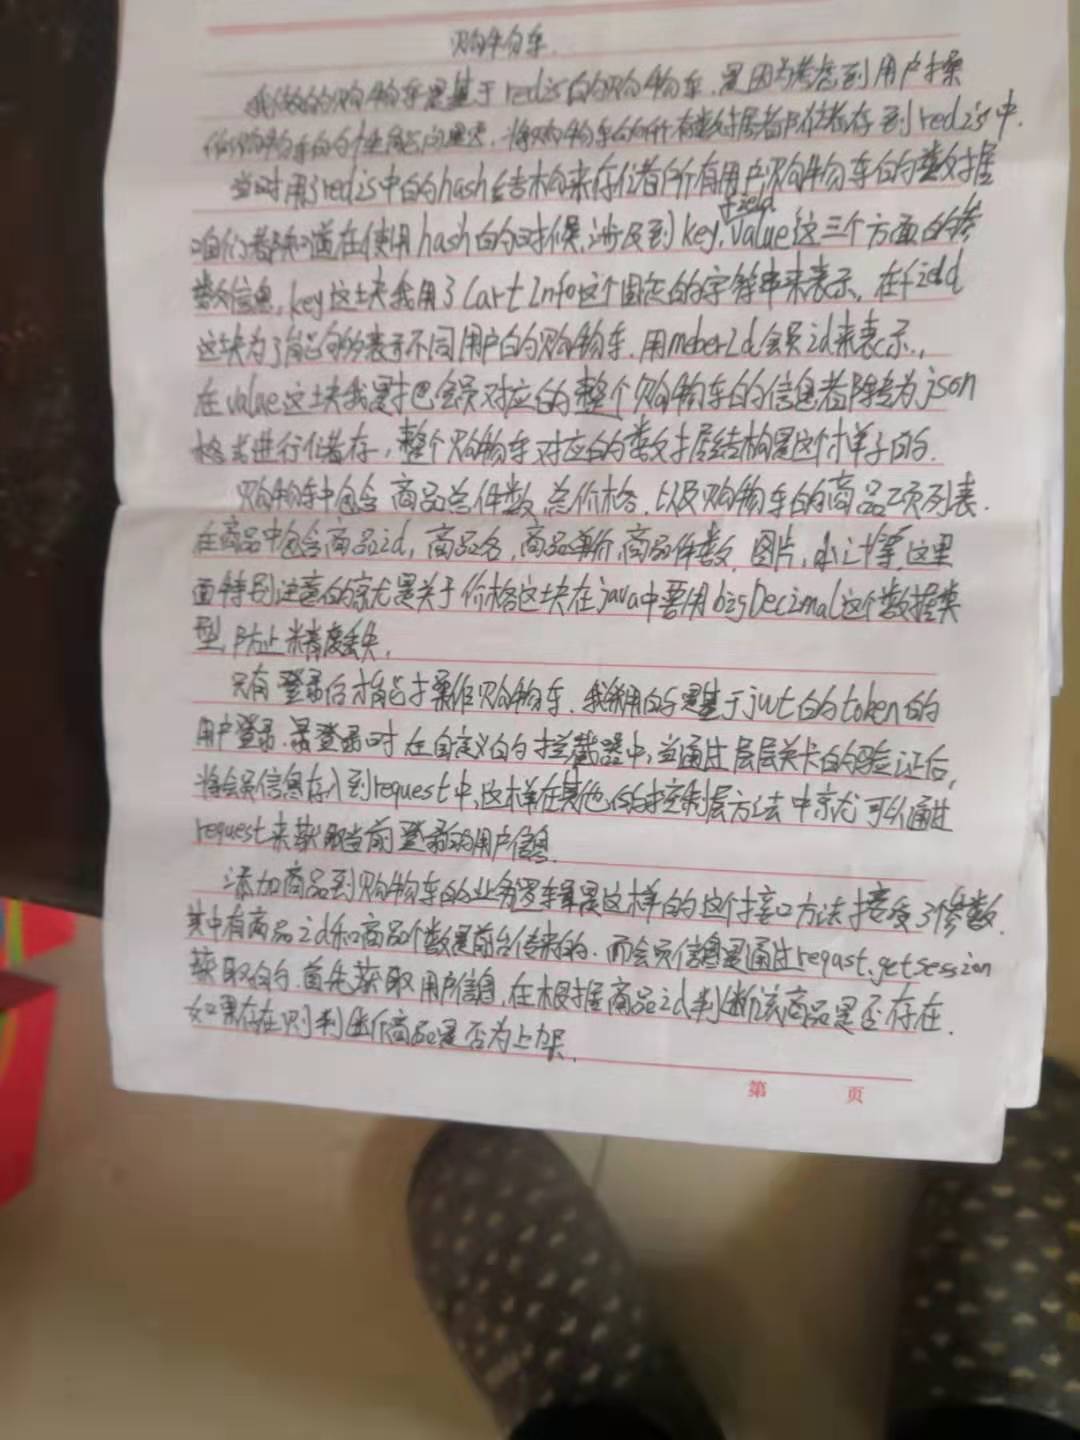 购物车.
我做的购物车是基于redis的购物车.是因为考虑到用户操
作购物车的的性能问题.将购物车的所有数据都储存到redis中.
当时用了redis中的hash结构来存储着所有用户购物车的数据
咱们都知道在使用hash的时候,涉及到key,field,value这三个方面的参
数信息,key这块我用了CartInfo这个固定的字符串来表示,在field
这块为了能够表示不同用户的购物车.用meberId会员id来表示.,
在value这块我是把会员对应的整个购物车的信息都转为json
格式进行储存,整个购物车对应的数据结构是这个样子的.
购物车中包含商品总件数,总价格.以及购物车的商品项列表.
在商品中包含商品id,商品名,商品单价,商品件数,图片,小计等,这里
面特别注意的就是关于价格这块在java中要用bigDecimal这个数据类
型,防止精度丢失,
只有登录后才能操作购物车.我采用的是基于jwt的token的
用户登录.是登录时在自定义的拦截器中,当通过层层关卡的验证后,
将会员信息存入到request中,这样在其他的控制层方法中就可以通过
request来获取当前登录的用户信息.
添加商品到购物车的业务逻辑是这样的这个接口方法接受3个参数.
其中有商品id和商品个数是前台传来的.而会员信息是通过reqast.getsession
获取的.首先获取用户信息,在根据商品id判断该商品是否存在.
如果存在则判断商品是否为上架.
第 页